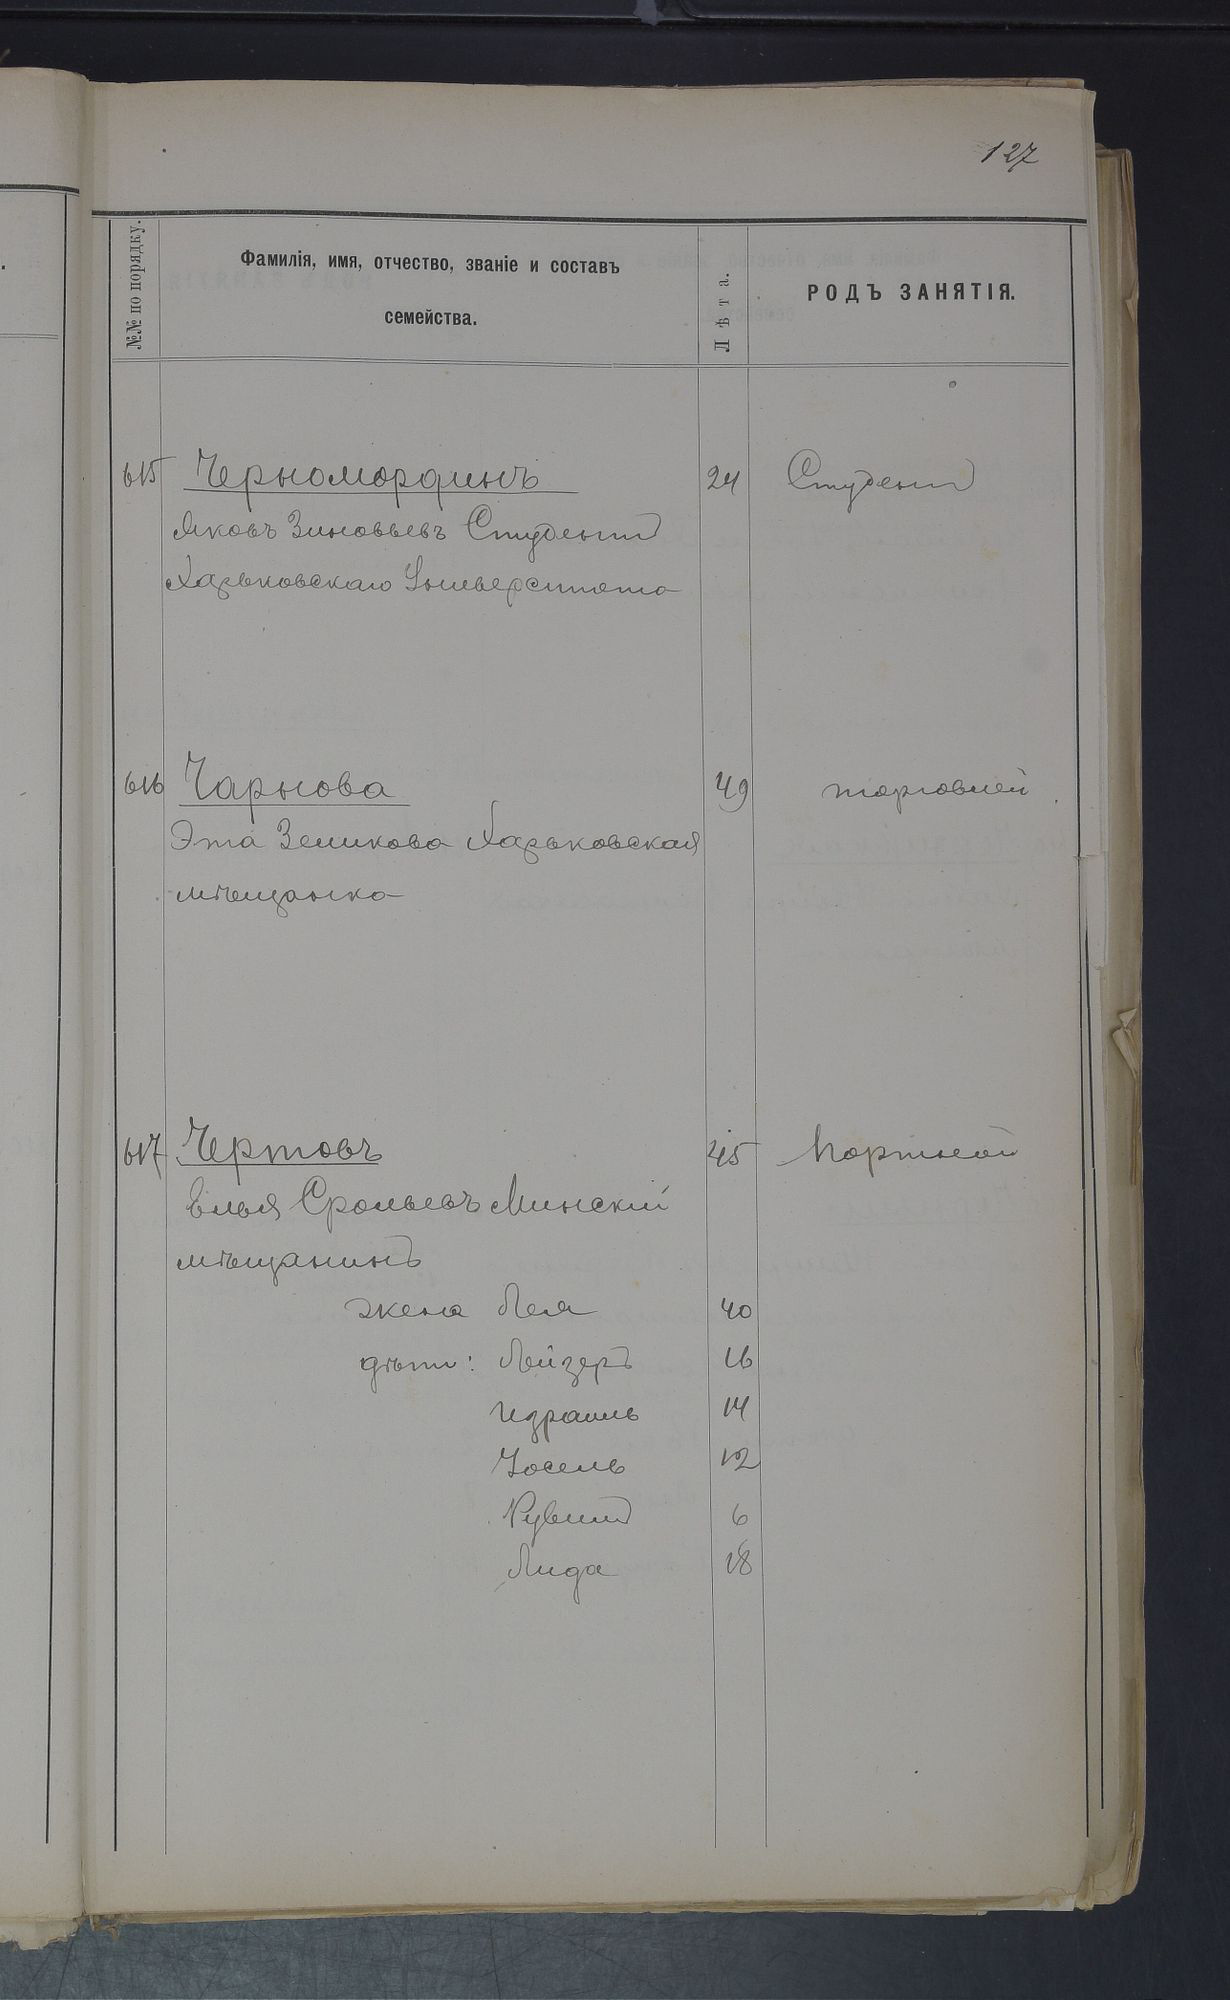 127
№№ по порядку.
Фамилія, имя, отчество, званіе и составъ
семейства.
Лѣта.
РОДЪ ЗАНЯТІЯ.
615 Черномординъ 24 Студентъ
Яковъ Зиновьевъ Студентъ
Харьковскаго Университета
616 Чарнова 49 торговлей
Эта Зеликова Харьковская
мѣщанка
617 Чертовъ 45 Портной
Елья Срольевъ Минскій
мѣщанинъ
жена Лея 40
дѣти: Лейзеръ 16
Израиль 14
Іосель 12
Рувинъ 6
Лида 18